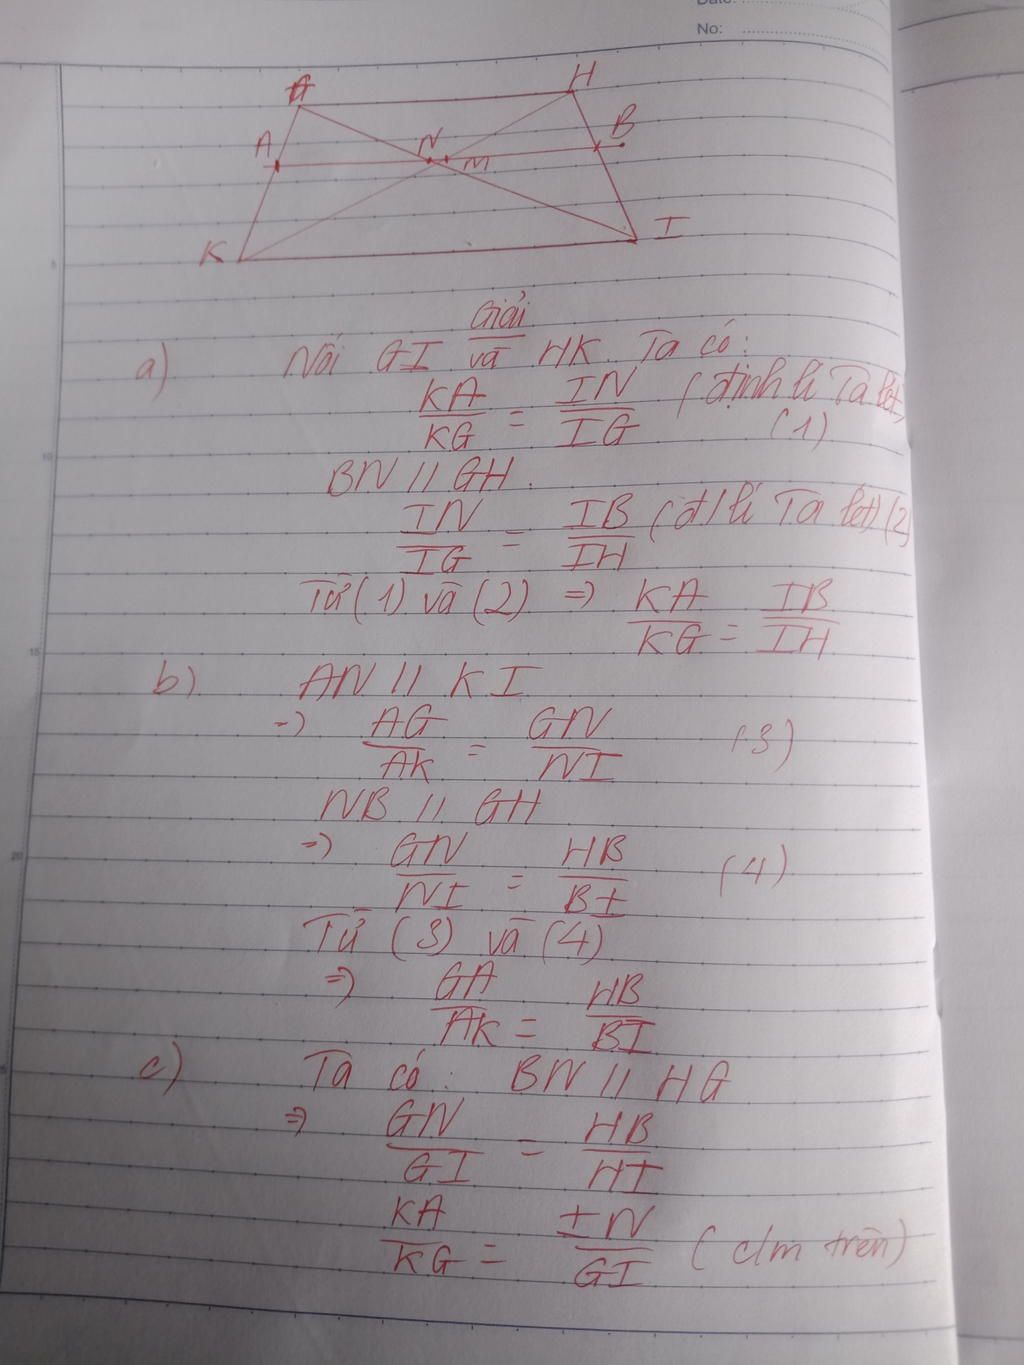 Date:
No:
G H
A N M B
K I
Giải
a) Nối GI và HK. Ta có:
KA/KG = IN/IG (định lí Ta lét)
(1)
BN // GH.
IN/IG = IB/IH (đ/lí Ta lét) (2)
Từ (1) và (2) => KA/KG = IB/IH
b) AN // KI
=> AG/AK = GN/NI (3)
NB // GH
=> GN/NI = HB/BI (4)
Từ (3) và (4)
=> GA/AK = HB/BI
c) Ta có: BN // HG
=> GN/GI = HB/HI
KA/KG = IN/GI (c/m trên)
5
10
15
20